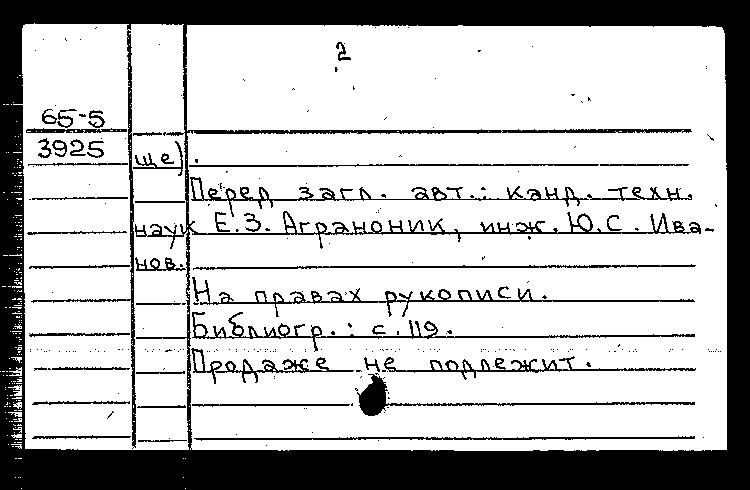 2
65-5
3925 ще).
Перед загл. авт.: канд. техн.
наук Е.З. Аграноник, инж. Ю.С. Ива-
нов.
На правах рукописи.
Библиогр.: с. 119.
Продаже не подлежит.